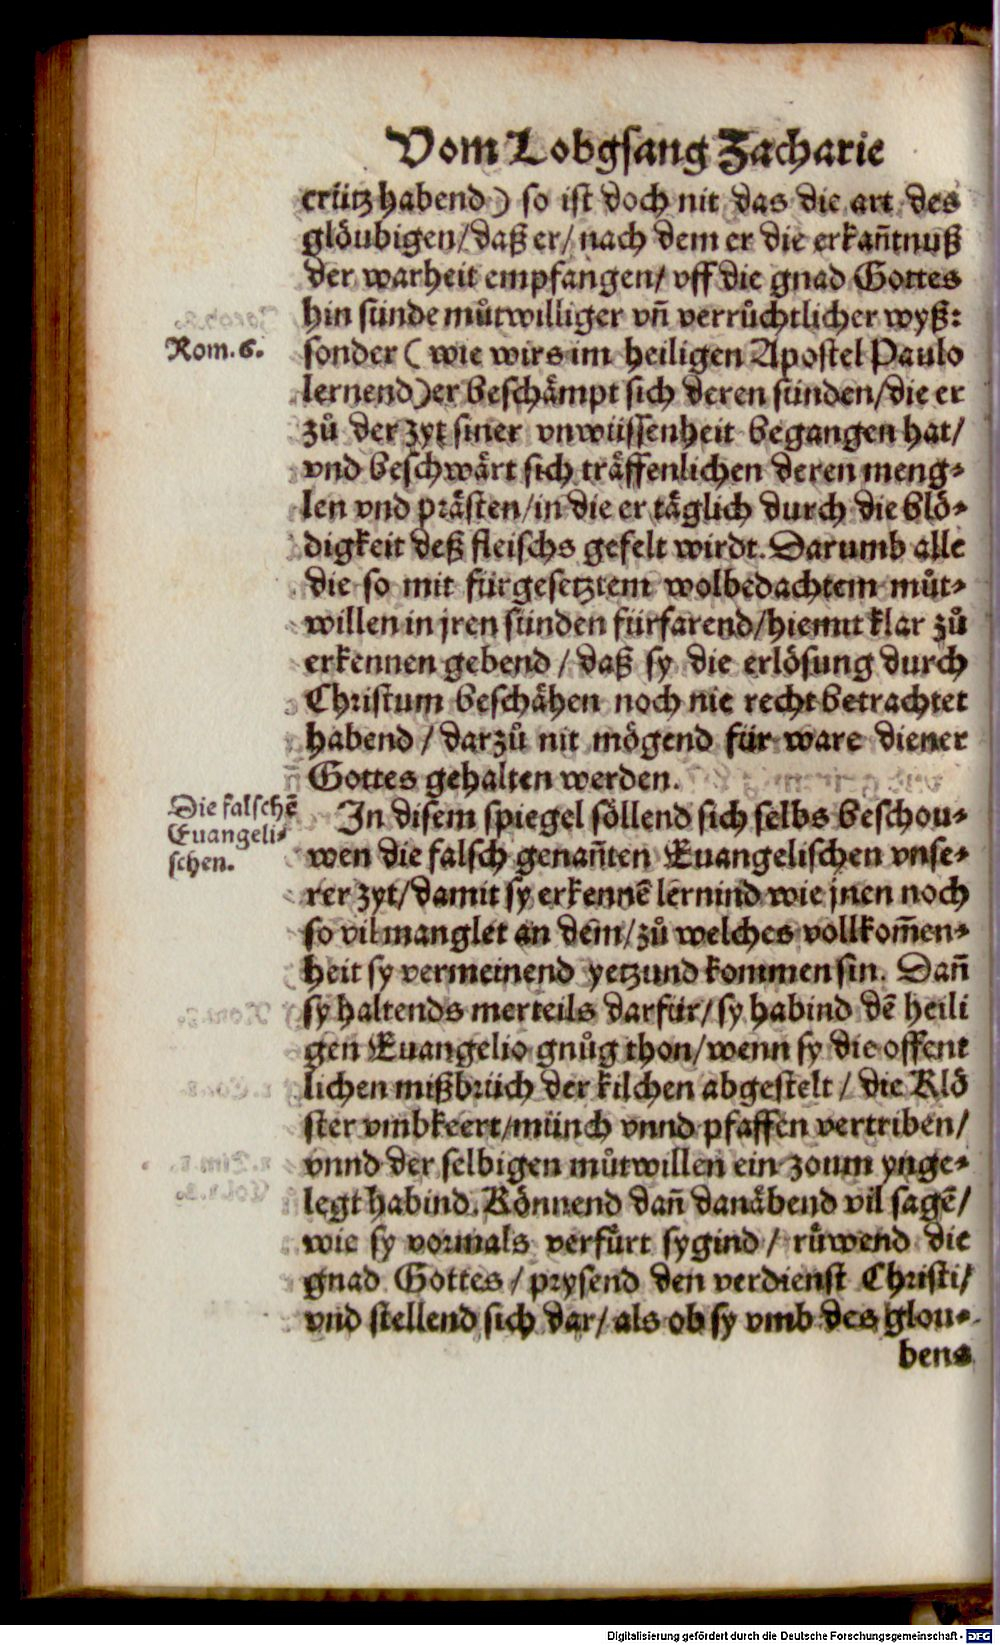 Vom Lobgsang Zacharie
crütz habend) so ist doch nit das die art des
glöubigen/ daß er/ nach dem er die erkañtnuß
der warheit empfangen/ vff die gnad Gottes
hin sünde můtwilliger vñ verrůchtlicher wyß:
Rom. 6.
sonder ( wie wirs im heiligen Apostel Paulo
lernend) er beschämpt sich deren sünden/ die er
zů der zyt siner vnwüssenheit begangen hat/
vnd beschwärt sich träffenlichen deren meng-
len vnd prästen/ in die er täglich durch die blö-
digkeit deß fleischs gefelt wirdt. Darumb alle
die so mit fürgesetztem wolbedachtem můt-
willen in jren sünden fürfarend/ hiemit klar zů
erkennen gebend / daß sy die erlösung durch
Christum beschähen noch nie recht betrachtet
habend / darzů nit mögend für ware diener
Gottes gehalten werden.
Die falschē
Euangeli-
schen.
In disem spiegel söllend sich selbs beschou-
wen die falsch genañten Euangelischen vnse-
rer zyt/ damit sy erkennē lernind wie jnen noch
so vil manglet an dem/ zů welches vollkom̄en-
heit sy vermeinend yetzund kommen sin. Dañ
sy haltends merteils darfür/ sy habind dē heili
gen Euangelio gnůg thon/ wenn sy die offent
lichen mißbrüch der kilchen abgestelt / die Klö
ster vmbkeert/ münch vnnd pfaffen vertriben/
vnnd der selbigen můtwillen ein zoum ynge-
legt habind. Könnend dañ danäbend vil sagē/
wie sy vormals verfürt sygind / růwend die
gnad Gottes / prysend den verdienst Christi/
vnd stellend sich dar/ als ob sy vmb des glou-
bens
Digitalisierung gefördert durch die Deutsche Forschungsgemeinschaft - DFG